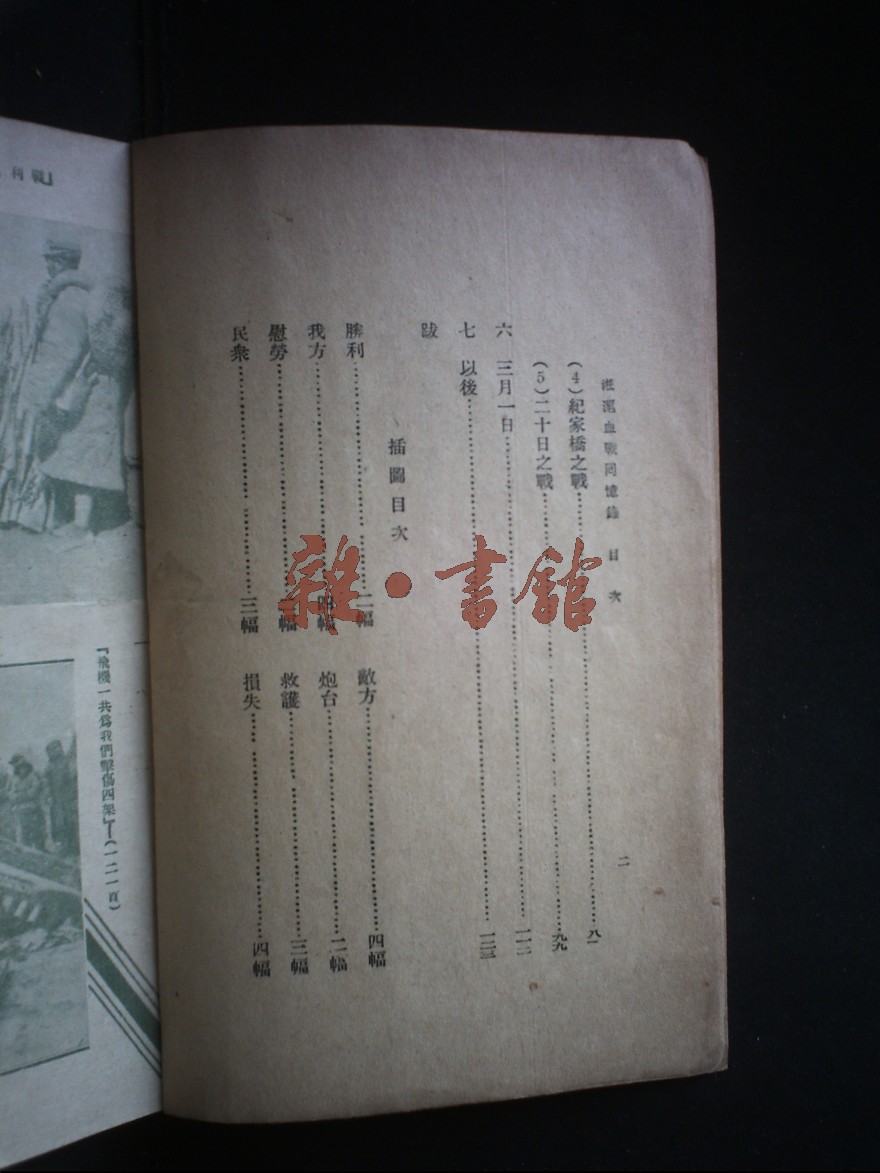 淞滬血戰回憶錄 目次
二
(4)紀家橋之戰……八一
(5)二十日之戰……九九
六 三月一日……一一二
七 以後……一二三
跋
插圖目次
勝利……二幅 敵方……四幅
我方……四幅 炮台……二幅
慰勞……幅 救護……三幅
民衆……三幅 損失……四幅
雜·書館
戰利
『飛機一共爲我們擊傷四架』—(一二一頁)